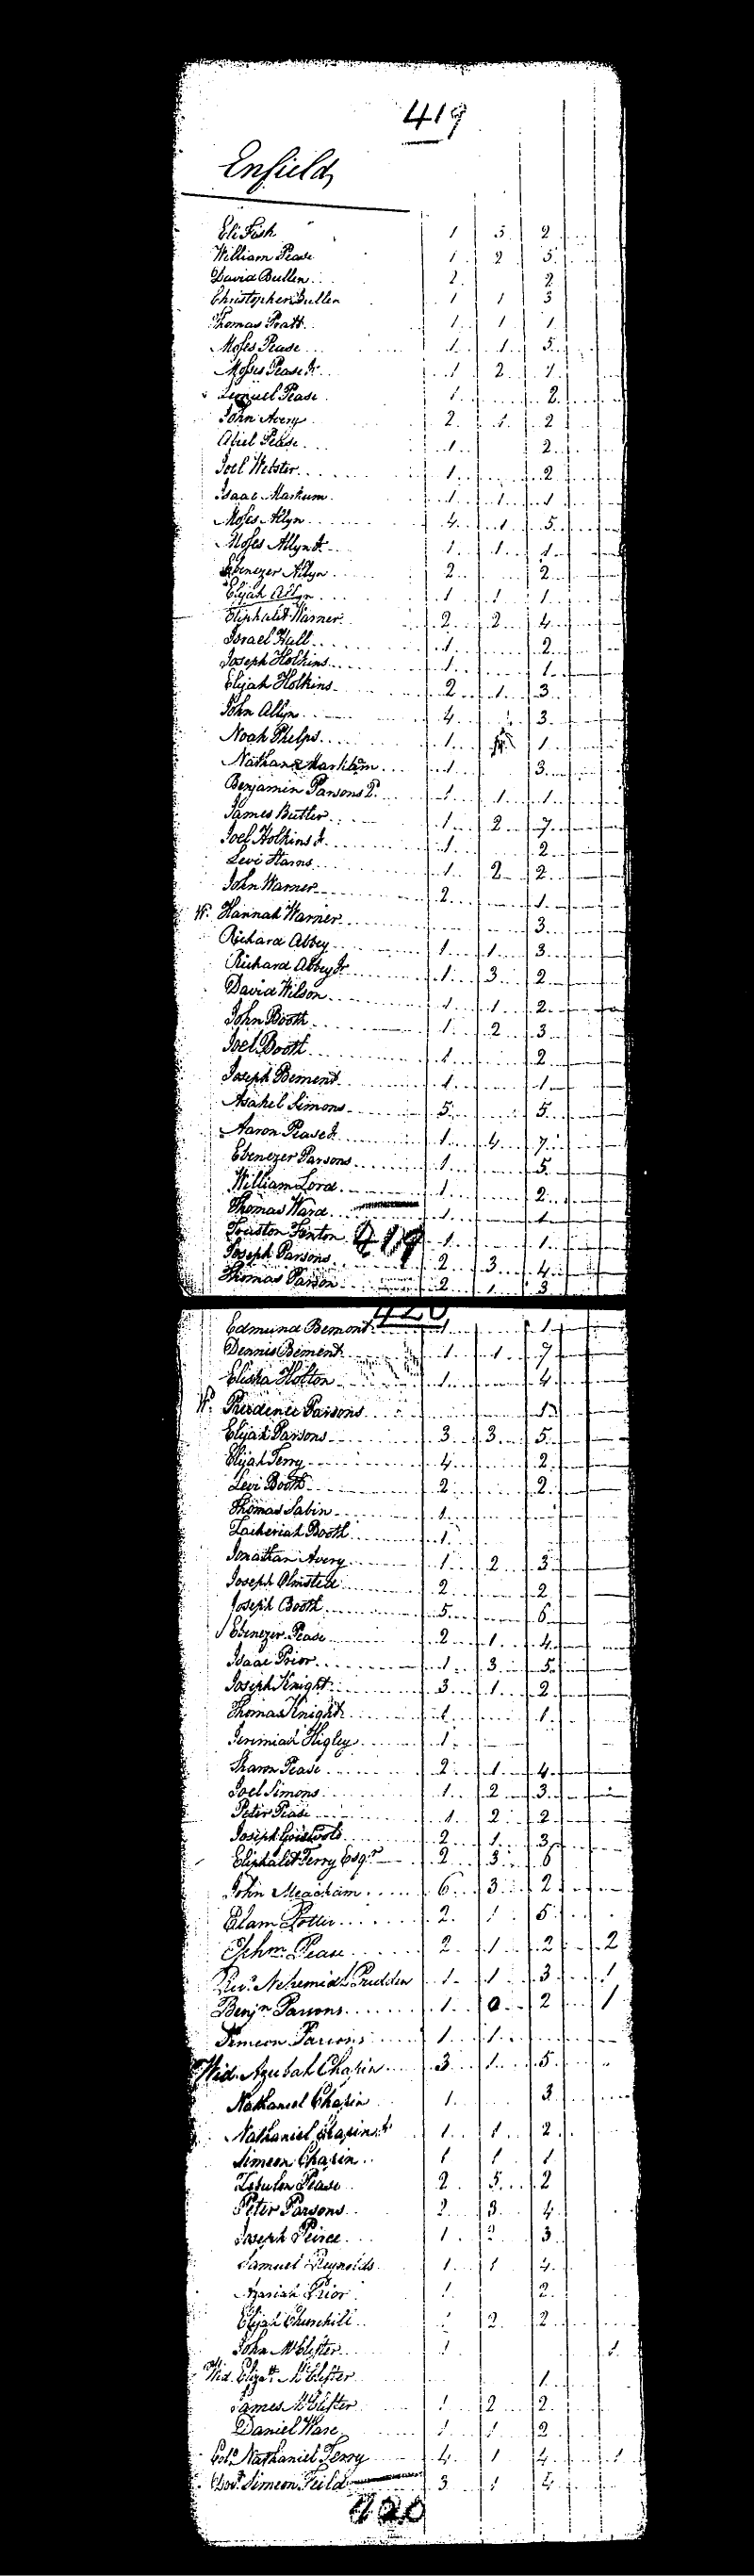 419
Enfield
Eli Fish 1 3 2
William Pease 1 2 5
David Bullen 2 2
Christopher Bullen 1 1 3
Thomas Pratt 1 1 1
Moses Pease 1 1 5
Moses Pease Jr 1 2 1
Lemuel Pease 1 2
John Avery 2 1 2
Abiel Pease 1 2
Joel Webster 1 2
Isaac Markum 1 1 1
Moses Allyn 4 1 5
Moses Allyn Jr 1 1 1
Ebenezer Allyn 2 2
Elijah Allyn 1 1 1
Eliphalet Warner 2 2 4
Israel Hall 1 2
Joseph Holkins 1 1
Elijah Holkins 2 1 3
John Allyn 4 3
Noah Phelps 1 1
Nathan Markham 1 3
Benjamin Parsons 2d 1 1 1
James Butler 1 2 7
Joel Holkins Jr 1 2
Levi Starns 1 2 2
John Warner 2 1
Wd Hannah Warner 3
Richard Abbey 1 1 3
Richard Abbey Jr 1 3 2
David Wilson 1 1 2
John Booth 1 2 3
Joel Booth 1 2
Joseph Bement 1 1
Asahel Simons 5 5
Aaron Pease Jr 1 4 7
Ebenezer Parsons 1 5
William Lord 1 2
Thomas Ward 1 1
Fenton 1 1
419
Joseph Parsons 2 3 4
Thomas Parson 2 1 3
420
Edmund Bemont 1 1
Dennis Bement 1 1 7
Elisha Holton 1 4
Wd Prudence Parsons 1
Elijah Parsons 3 3 5
Elijah Terry 4 2
Levi Booth 2 2
Thomas Sabin 1
Zacheriah Booth 1
Jonathan Avery 1 2 3
Joseph Olmsted 2 2
Joseph Booth 5 6
Ebenezer Pease 2 1 4
Isaac Prior 1 3 5
Joseph Knight 3 1 2
Thomas Knight 1 1
Jeremiah Higley 1
Sharon Pease 2 1 4
Joel Simons 1 2 3
Peter Pease 1 2 2
Joseph 2 1 3
Eliphalet Terry Esqr 2 3 6
John Meacham 6 3 2
Elam Potter 2 1 5
Ephm Pease 2 1 2 2
Revd Nehemiah Prudden 1 1 3 1
Benjn Parsons 1 0 2 1
Simeon Parsons 1 1
Wid. Azubah Chapin 3 1 5
Nathaniel Chapin 1 3
Nathaniel Chapin Jr 1 1 2
Simeon Chapin 1 1 1
Zebulon Pease 2 5 2
Peter Parsons 2 3 4
Joseph Peirce 1 2 3
Samuel Reynolds 1 1 4
Azariah Prior 1 2
Elijah Churchill 1 2 2
John McClester 1 1
Wid. Elizath McClester 1
James McClester 1 2 2
Daniel Ware 1 1 2
Colo Nathaniel Terry 4 1 4 1
Simeon Feild 3 1 4
420